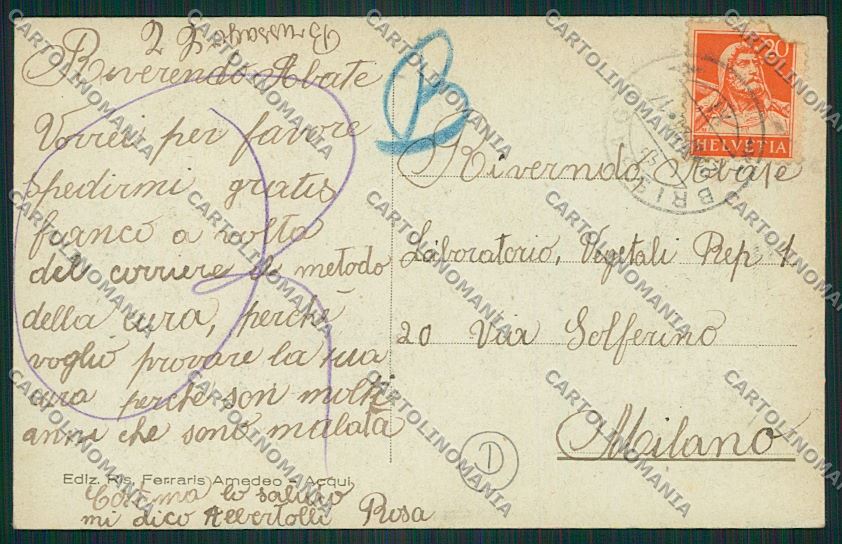 Brissago
Riverendo Abate
Vorrei per favore
spedirmi gratis
franco a volta
del corriere il metodo
della cura, perchè
voglio provare la sua
cura perchè son molti
anni che sono malata
Ediz. Ris. Ferraris Amedeo - Acqui
lo saluto
mi dico Albertolli Rosa
B
Riverndo Abate
Laboratorio, Vegetali Rep 1
20 Via Solferino
Milano
D
20
HELVETIA
CARTOLINOMANIA